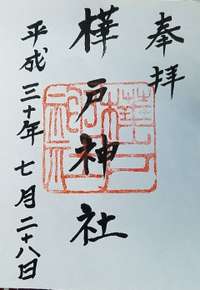 奉拝
樺戸神社
平成三十年七月二十八日